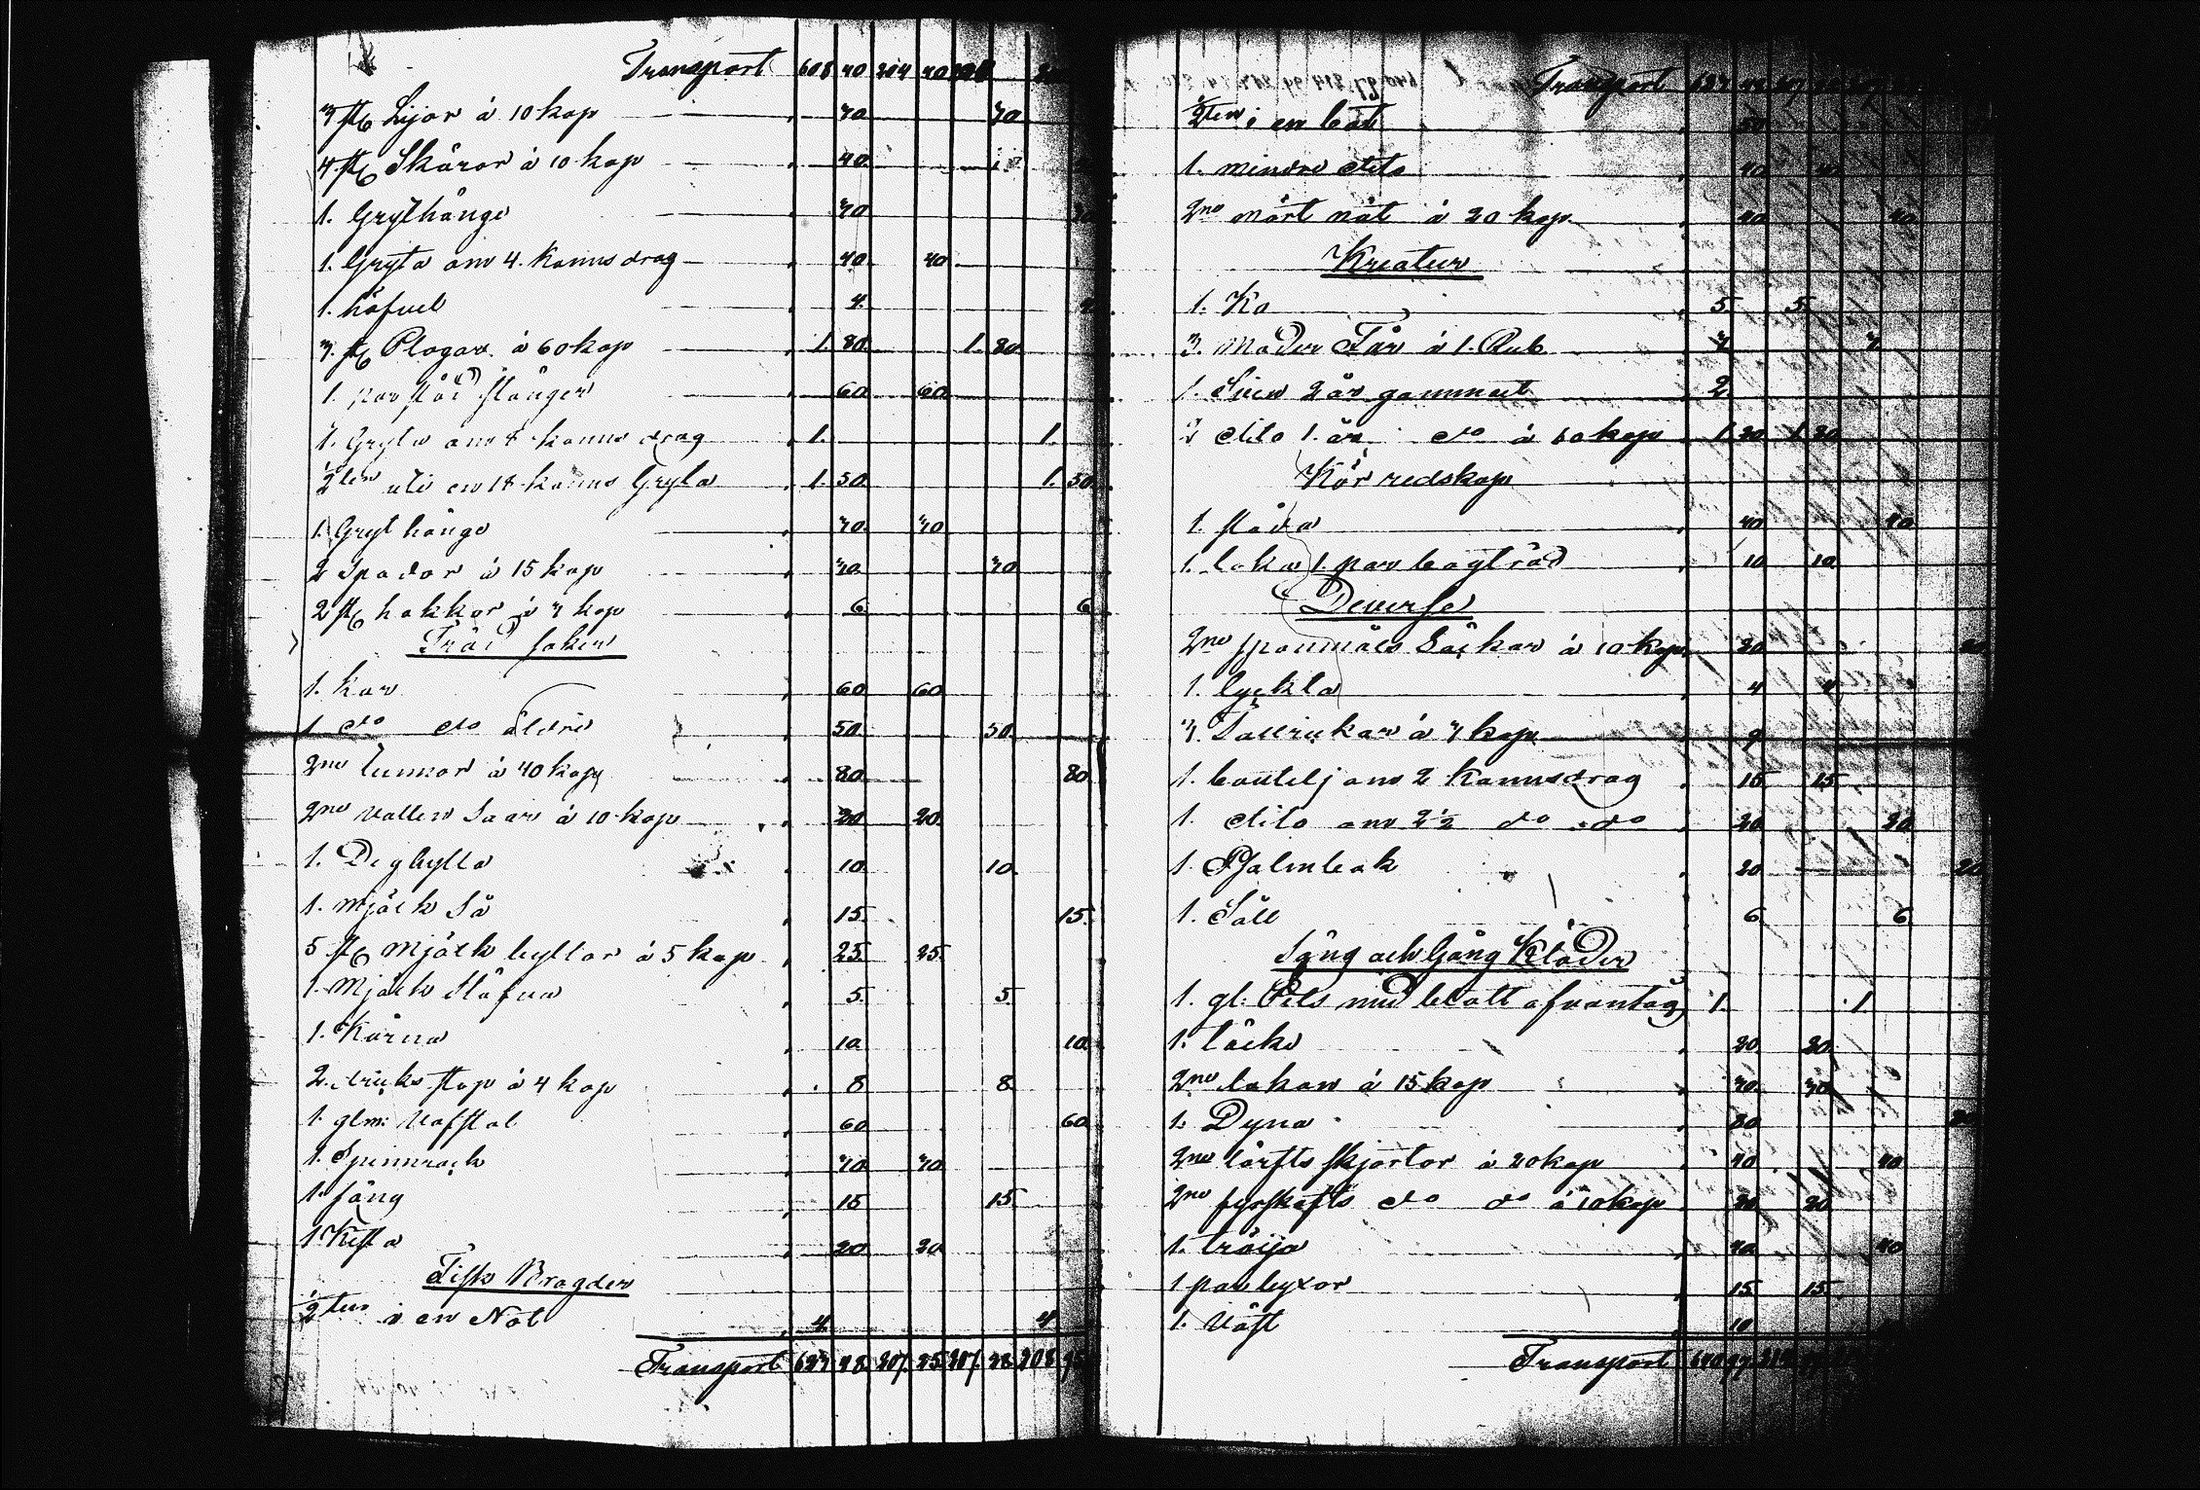 Transport 608 40 204 40
3 st Lijor á 10 kop 30 30
4 st Skäror á 10 kop 40
1. Grythänge 30
1. Gryta om 4. Kanns drag 40 40
1. håfvel 4
3. st Plogar á 60 kop 1. 80 1. 80
1. par stänger 60 60
1. Gryta om kanns drag 1. 1.
½ten uti en 18 kanns Gryta 1. 50 1. 50
1. Grythänge 30 30
2 Spador á 15 kop 30 30
2 st hakkor á 3 kop 6 6
Träd saker
1. kar 60 60
1 do do äldre 50 50
2ne tunnor á 40 kop 80 80
2ne vatten Såar á 10 kop 20 20
1. Degbytta 10 10
1. Mjölk Så 15 15
5 st Mjölk byttor á 5 kop 25 25
1. Mjölk Stäfva 5 5
1. Kärna 10 10
2. driks stop á 4 kop 8 8
1. glm: Vafstol 60 60
1. Spinnrock 30 30
1. säng 15 15
1. Kista 20 20
Fisk Bragder
½ten i en Not 4 4
Transport 623 28 207 25 207 28 208
Transport 623
½ten i en båt 50
1. mindre dito 40 40
2ne mört nät á 20 kop 40 40
Kreatur
1. Ko 5 5
3. Moder Får á 1. Rub 3 3
1. Svin 2 år gammalt 2
2 dito 1. år do á 60 kop 1 20 1 20
Kör redskap
1. släda 40 40
1. loka 1. par bogträd 10 10
Diverse
2ne spanmåls Säckar á 10 kop 20 20
1. lyckta 4 4
3. Tallrickar á 3 kop 9
1. boutelj om 2 Kannsdrag 15 15
1. dito om 2½ do do 20 20
1 Psalmbok 20 20
1. Såll 6 6
Säng och Gång Kläder
1. gl: Pels med blått ofvantåg 1. 1.
1. täcke 20 20
2ne lakan á 15 kop 30 30
1. Dyna 20 20
2ne lärfts skjortor á 20 kop 40 40
2ne fyrskafts do do á 10 kop 20 20
1. tröija 40 40
1 par byxor 15 15
1. Väst 10
Transport 640